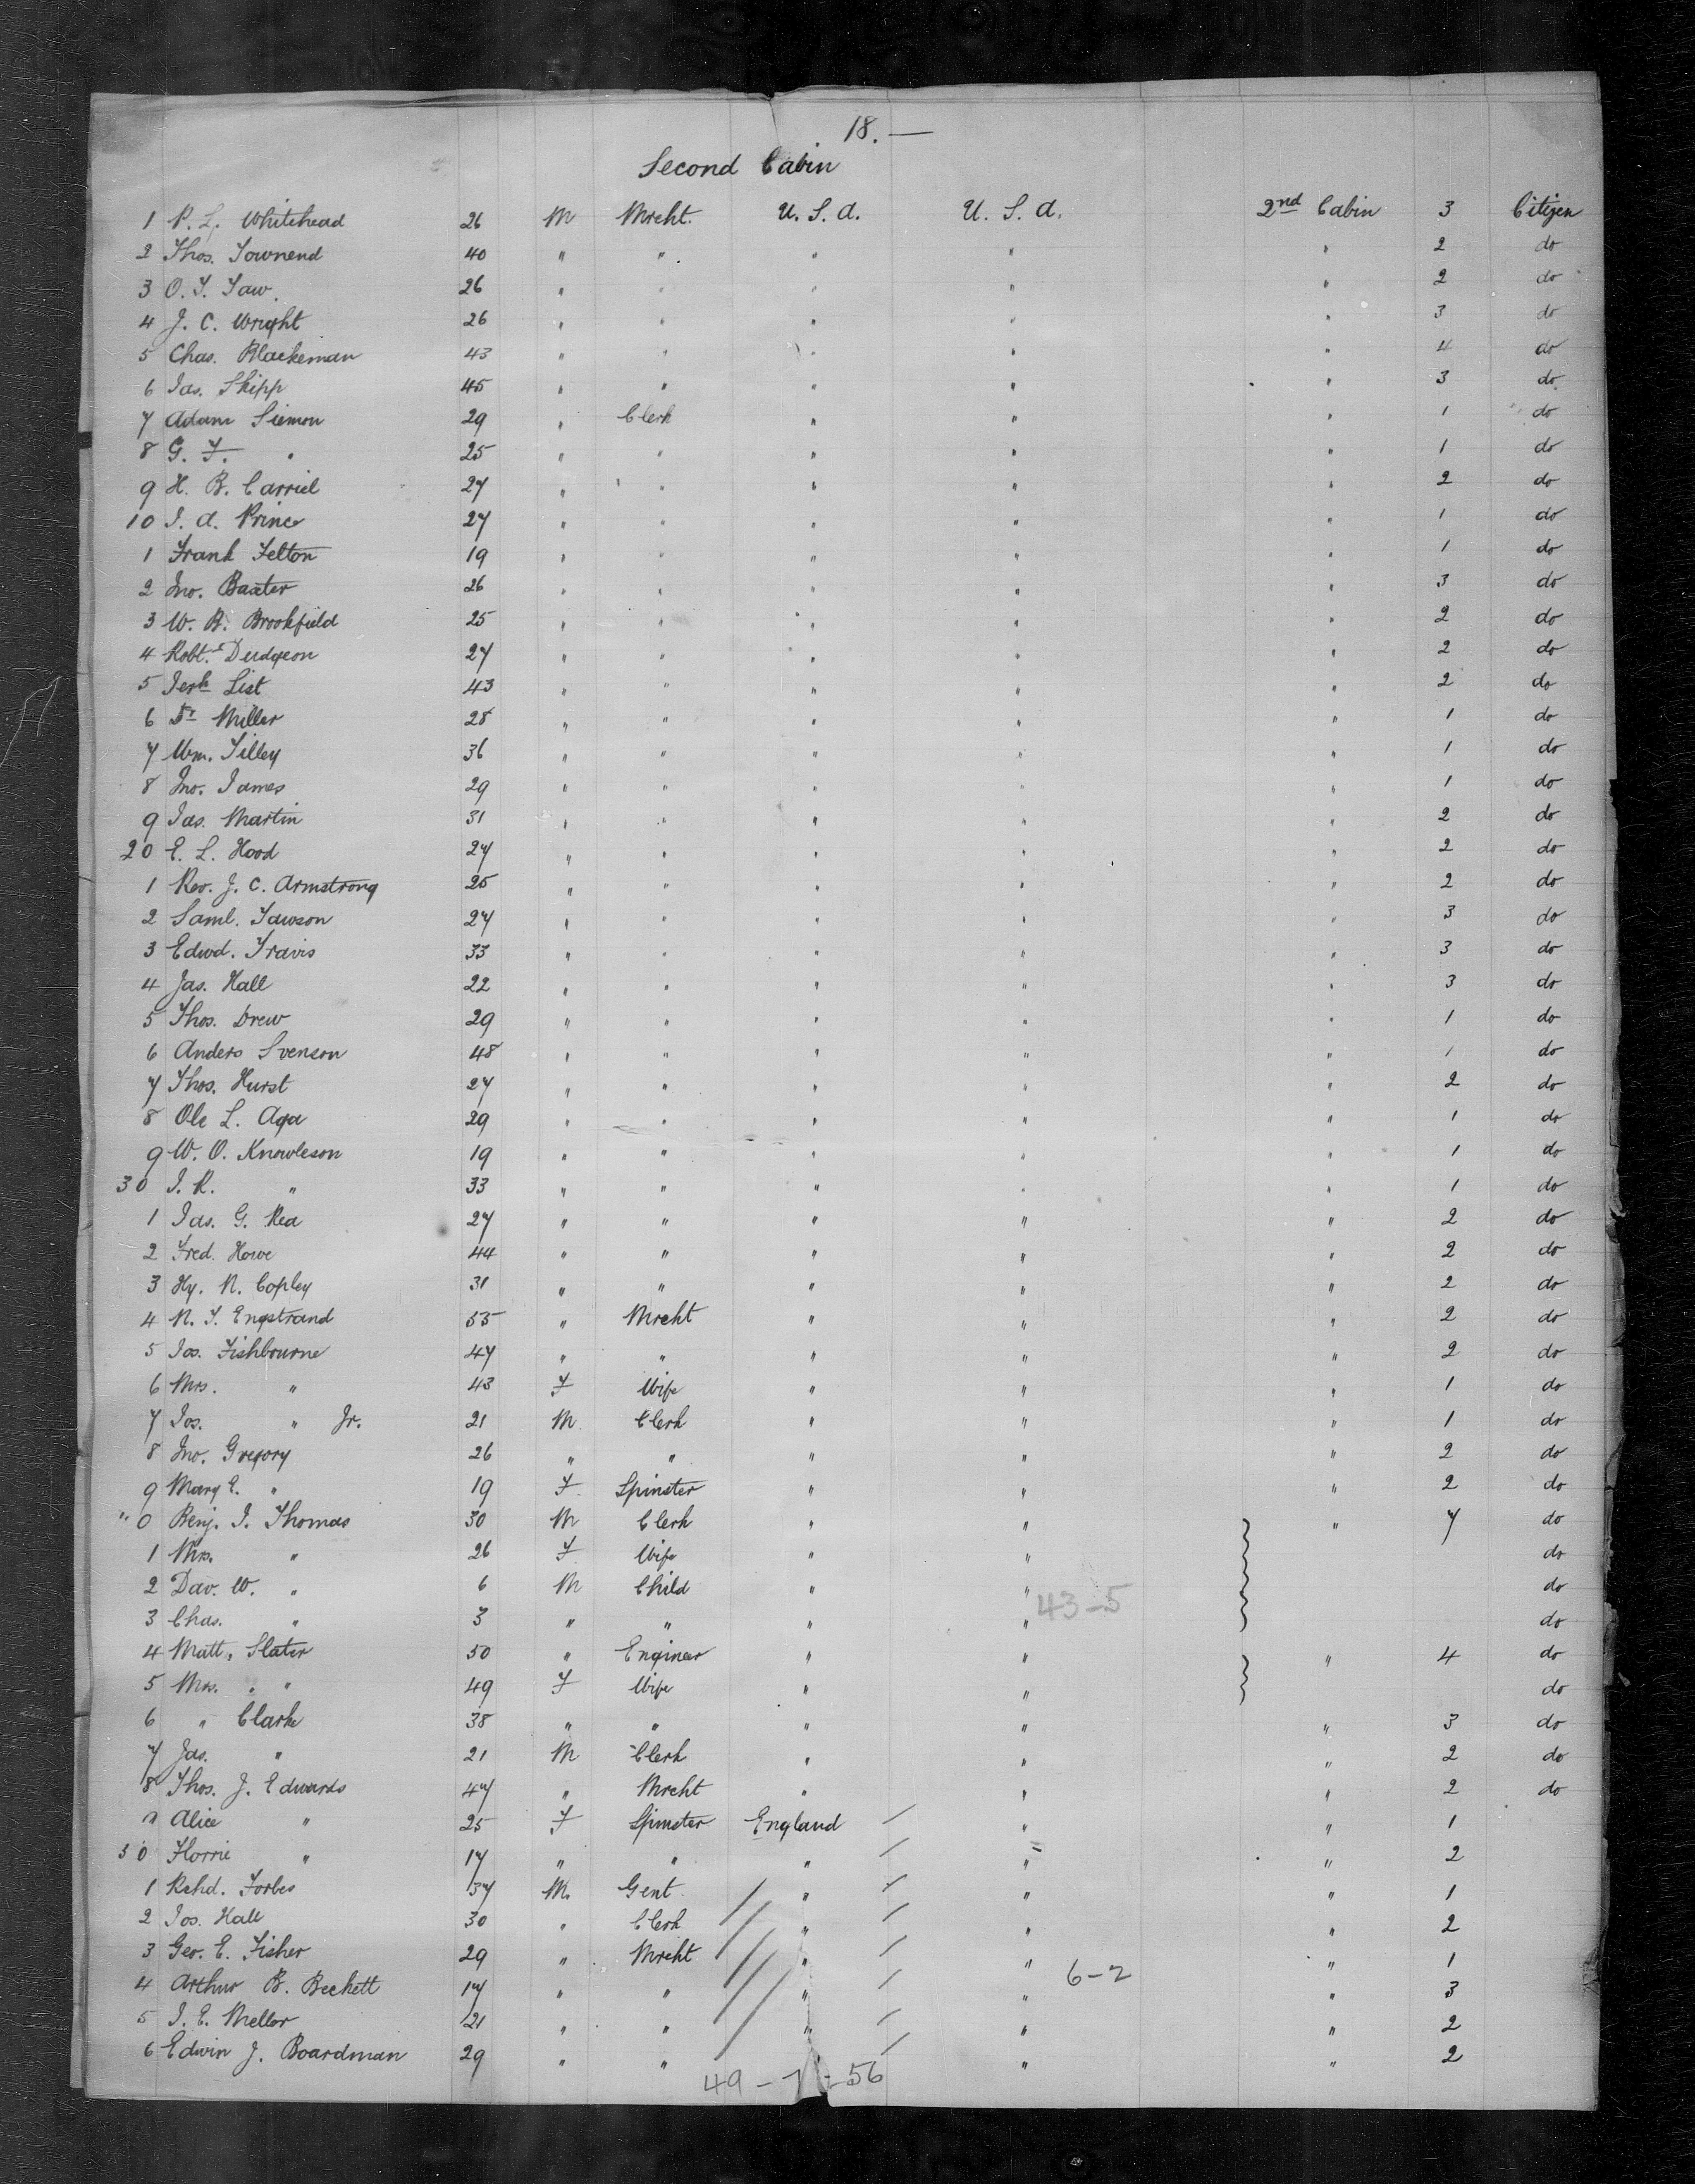 18. —
Second Cabin
1 P. L. Whitehead 26 M Mrcht. U. S. A. U. S. A. 2nd Cabin 3 Citizen
2 Thos. Townend 40 " " " " " 2 do
3 O. T. Taw. 26 " " " " " 2 do
4 J. C. Wright 26 " " " " " 3 do
5 Chas. Blackeman 43 " " " " " 4 do
6 Jas. Shipp 45 " " " " " 3 do
7 Adam Siemon 29 " Clerk " " " 1 do
8 G. F. " 25 " " " " " 1 do
9 H. B. Carriel 27 " " " " " 2 do
10 J. A. Prince 27 " " " " " 1 do
1 Frank Felton 19 " " " " " 1 do
2 Jno. Baxter 26 " " " " " 3 do
3 W. B. Brookfield 25 " " " " " 2 do
4 Robt. Dudgeon 27 " " " " " 2 do
5 Jerh List 43 " " " " " 2 do
6 Dr Miller 28 " " " " " 1 do
7 Wm. Tilley 36 " " " " " 1 do
8 Jno. James 29 " " " " " 1 do
9 Jas. Martin 31 " " " " " 2 do
20 E. L. Hood 27 " " " " " 2 do
1 Rev. J. C. Armstrong 25 " " " " " 2 do
2 Saml. Tawson 27 " " " " " 3 do
3 Edwd. Travis 33 " " " " " 3 do
4 Jas. Hall 22 " " " " " 3 do
5 Thos. Drew 29 " " " " " 1 do
6 Anders Svenson 48 " " " " " 1 do
7 Thos. Hurst 27 " " " " " 2 do
8 Ole L. Aga 29 " " " " " 1 do
9 W. O. Knowleson 19 " " " " " 1 do
30 J. R. " 33 " " " " " 1 do
1 Jas. G. Rea 27 " " " " " 2 do
2 Fred. Howe 44 " " " " " 2 do
3 Hy. N. Copley 31 " " " " " 2 do
4 N. T. Engstrand 55 " Mrcht " " " 2 do
5 Jos. Fishbourne 47 " " " " " 2 do
6 Mrs. " 43 F Wife " " " 1 do
7 Jos. " Jr. 21 M Clerk " " " 1 do
8 Jno. Gregory 26 " " " " " 2 do
9 Mary E. " 19 F Spinster " " " 2 do
" 0 Benj. J. Thomas 30 M Clerk " " " 7 do
1 Mrs. " 26 F Wife " " do
2 Dav. W. " 6 M Child " " 43-5 do
3 Chas. " 3 " " " " do
4 Matt. Slater 50 " Engineer " " " 4 do
5 Mrs. " 49 F Wife " " do
6 " Clarke 38 " " " " " 3 do
7 Jas. " 21 M Clerk " " " 2 do
8 Thos. J. Edwards 47 " Mrcht " " " 2 do
9 Alice " 25 F Spinster England / " " 1
50 Florrie " 17 " " " / " " 2
1 Rchd. Forbes 37 M. Gent. " / " " 1
2 Jos. Hall 30 " Clerk " / " " 2
3 Geo. E. Fisher 29 " Mrcht " / " " 1
4 Arthur B. Beckett 17 " " " / " 6-2 " 3
5 J. E. Mellor 21 " " " / " " 2
6 Edwin J. Boardman 29 " " " / " " 2
49 - 7 = 56